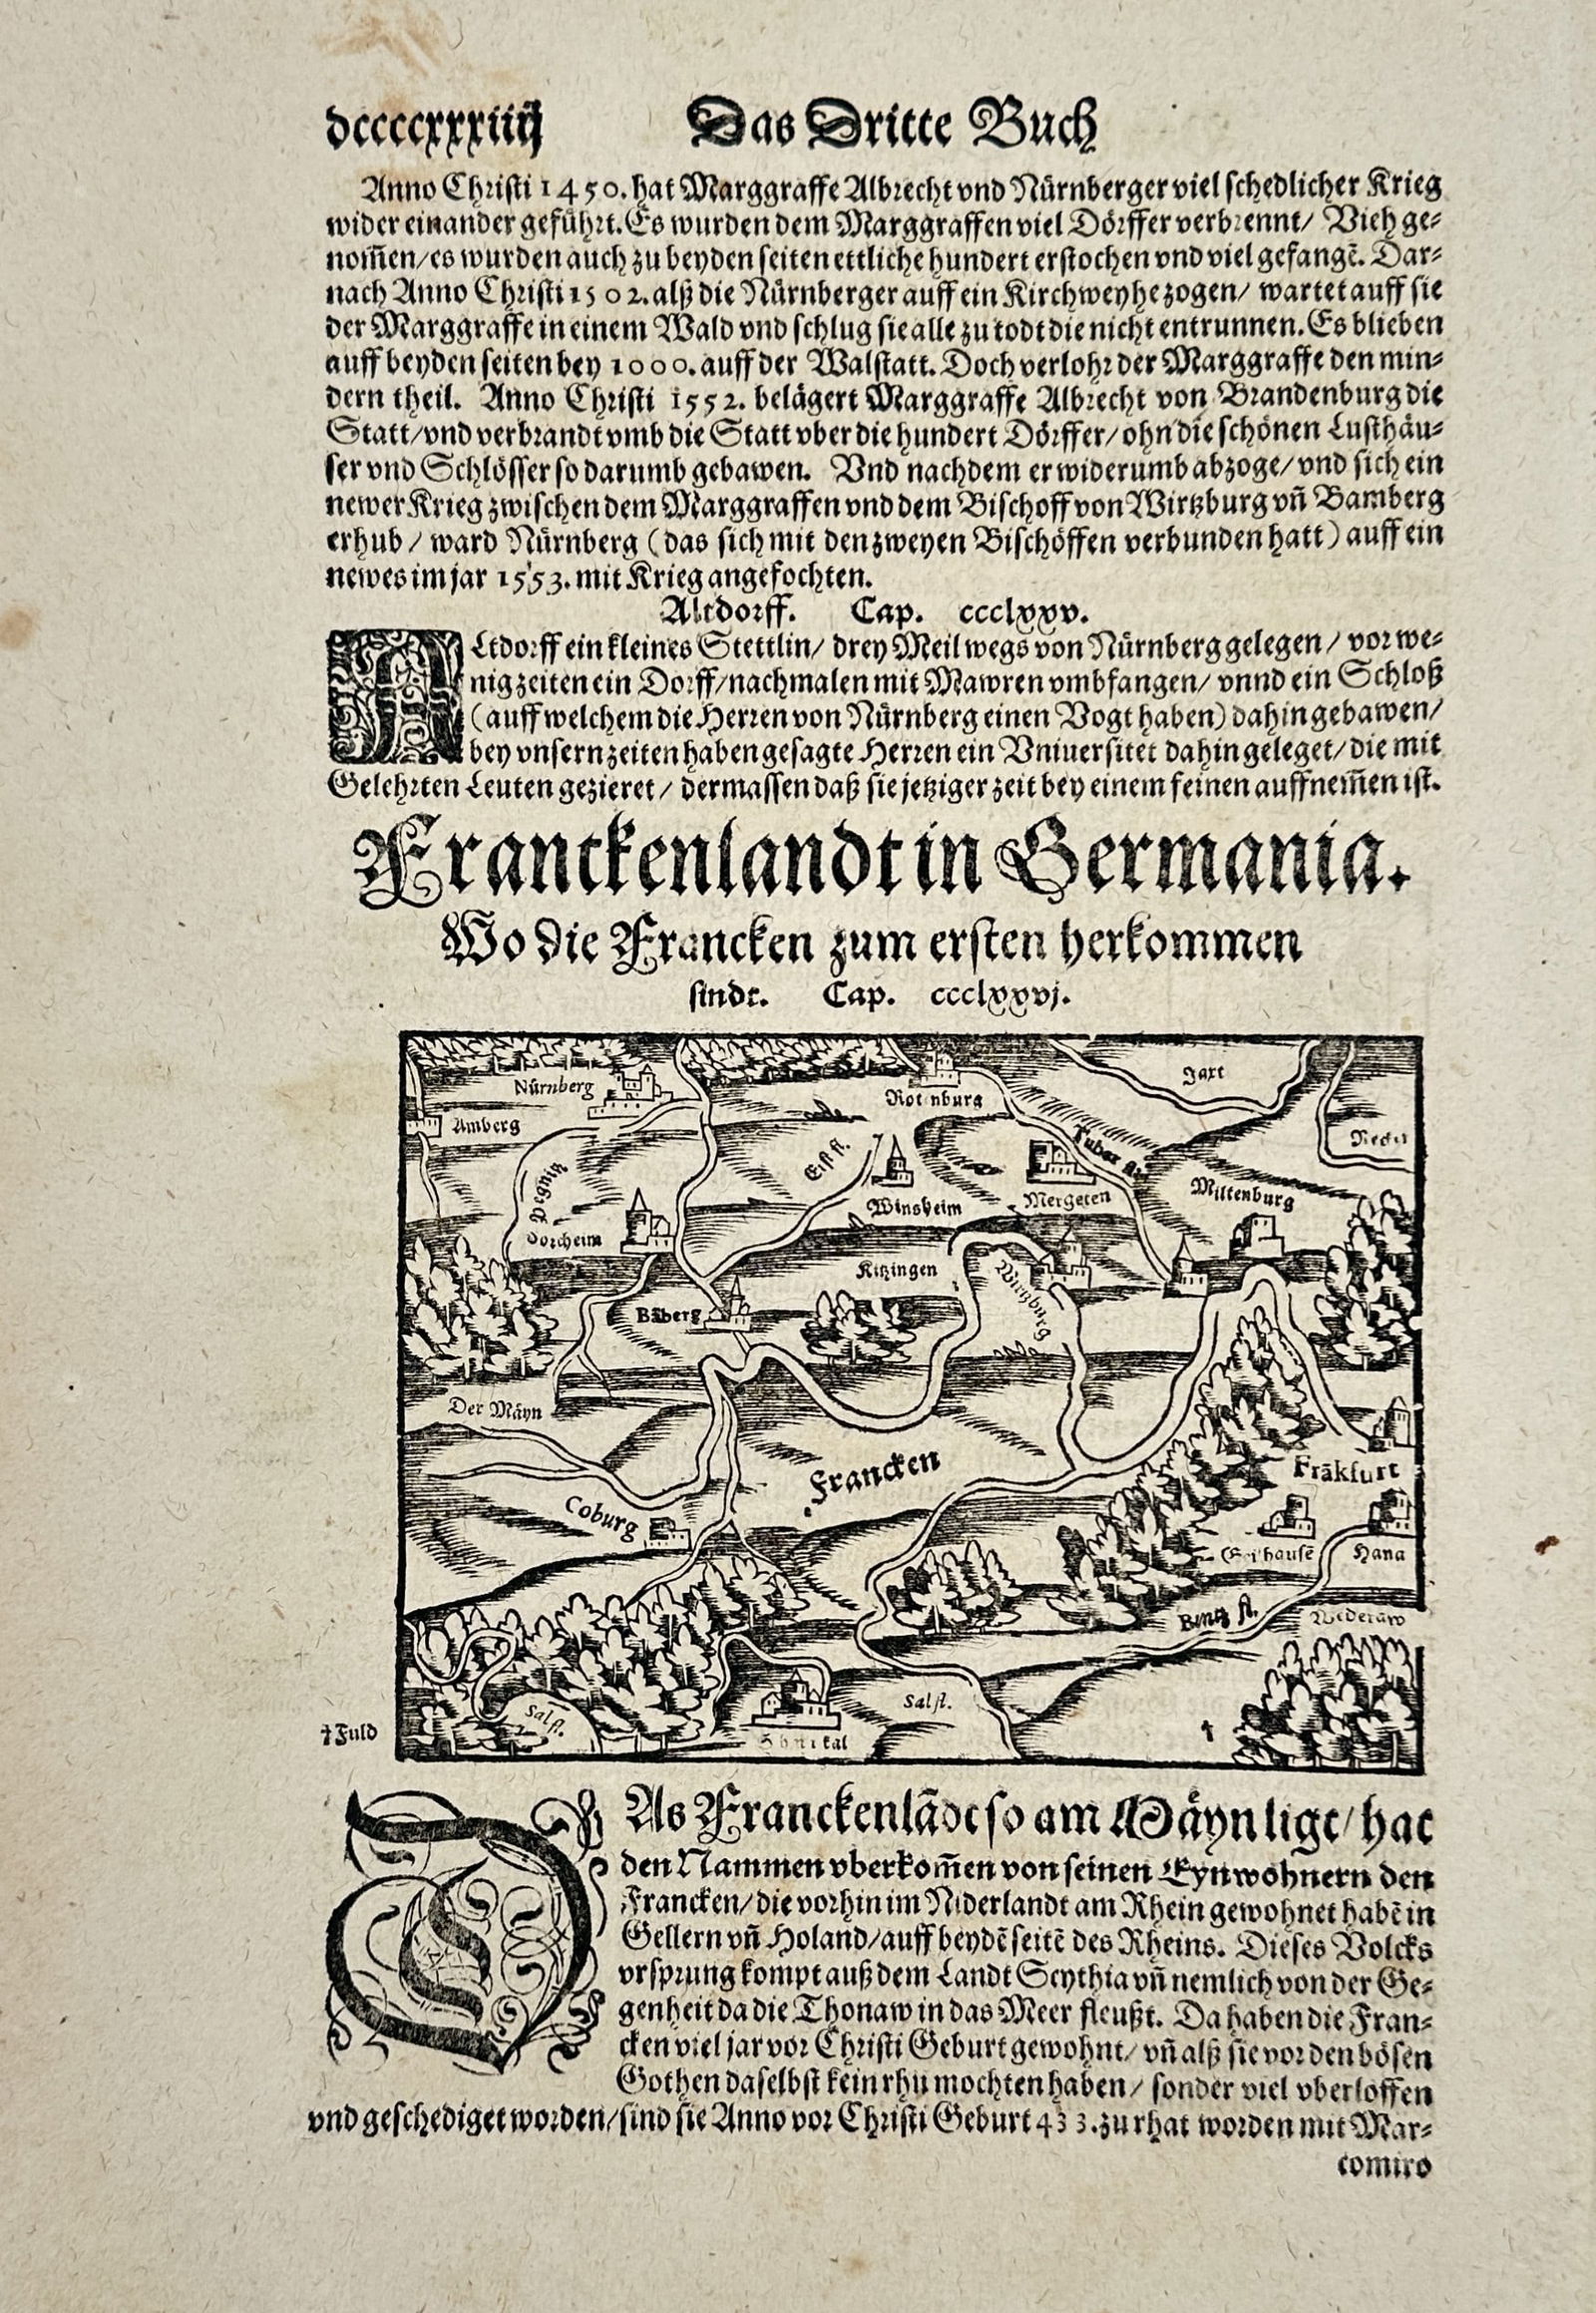 dccccxxxiiij
Das Dritte Buch
Anno Christi 1450. hat Marggraffe Albrecht vnd Nürnberger viel schedlicher Krieg
wider einander geführt. Es wurden dem Marggraffen viel Dörffer verbrennt/ Vieh ge-
nom̃en/ es wurden auch zu beyden seiten ettliche hundert erstochen vnd viel gefangẽ. Dar-
nach Anno Christi 1502. alß die Nürnberger auff ein Kirchweyhe zogen/ wartet auff sie
der Marggraffe in einem Wald vnd schlug sie alle zu todt die nicht entrunnen. Es blieben
auff beyden seiten bey 1000. auff der Walstatt. Doch verlohr der Marggraffe den min-
dern theil. Anno Christi 1552. belägert Marggraffe Albrecht von Brandenburg die
Statt/ vnd verbrandt vmb die Statt vber die hundert Dörffer/ ohn die schönen Lusthäu-
ser vnd Schlösser so darumb gebawen. Vnd nachdem er widerumb abzoge/ vnd sich ein
newer Krieg zwischen dem Marggraffen vnd dem Bischoff von Wirtzburg vñ Bamberg
erhub/ ward Nürnberg (das sich mit den zweyen Bischöffen verbunden hatt) auff ein
newes im jar 1553. mit Krieg angefochten.
Altdorff. Cap. ccclxxv.
ALtdorff ein kleines Stettlin/ drey Meil wegs von Nürnberg gelegen/ vor we-
nig zeiten ein Dorff/ nachmalen mit Mawren vmbfangen/ vnnd ein Schloß
(auff welchem die Herren von Nürnberg einen Vogt haben) dahin gebawen/
bey vnsern zeiten haben gesagte Herren ein Vniuersitet dahin geleget/ die mit
Gelehrten Leuten gezieret/ dermassen daß sie jetziger zeit bey einem feinen auffnem̃en ist.
Franckenlandt in Germania.
Wo die Francken zum ersten herkommen
sindt. Cap. ccclxxvj.
Nürnberg
Rotenburg
Jaxt
Amberg
Tuber fl.
Necker
Eist fl.
Pegnitz
Winsheim
Mergeten
Miltenburg
Vorcheim
Kitzingen
Wirtzburg
Bãberg
Der Mäyn
Francken
Frãkfurt
Coburg
Geilhausẽ
Hana
Bintz fl.
Wederaw
Sal fl.
Sal fl.
† Fuld
†
DAs Franckenlãdt so am Mäyn ligt/ hat
den Nammen vberkom̃en von seinen Eynwohnern den
Francken/ die vorhin im Niderlandt am Rhein gewohnet habẽ in
Gellern vñ Holand/ auff beydẽ seitẽ des Rheins. Dieses Volcks
vrsprung kompt auß dem Landt Scythia vñ nemlich von der Ge-
genheit da die Thonaw in das Meer fleußt. Da haben die Fran-
cken viel jar vor Christi Geburt gewohnt/ vñ alß sie vor den bösen
Gothen daselbst kein rhu mochten haben/ sonder viel vberloffen
vnd geschediget worden/ sind sie Anno vor Christi Geburt 433. zu rhat worden mit Mar-
comiro